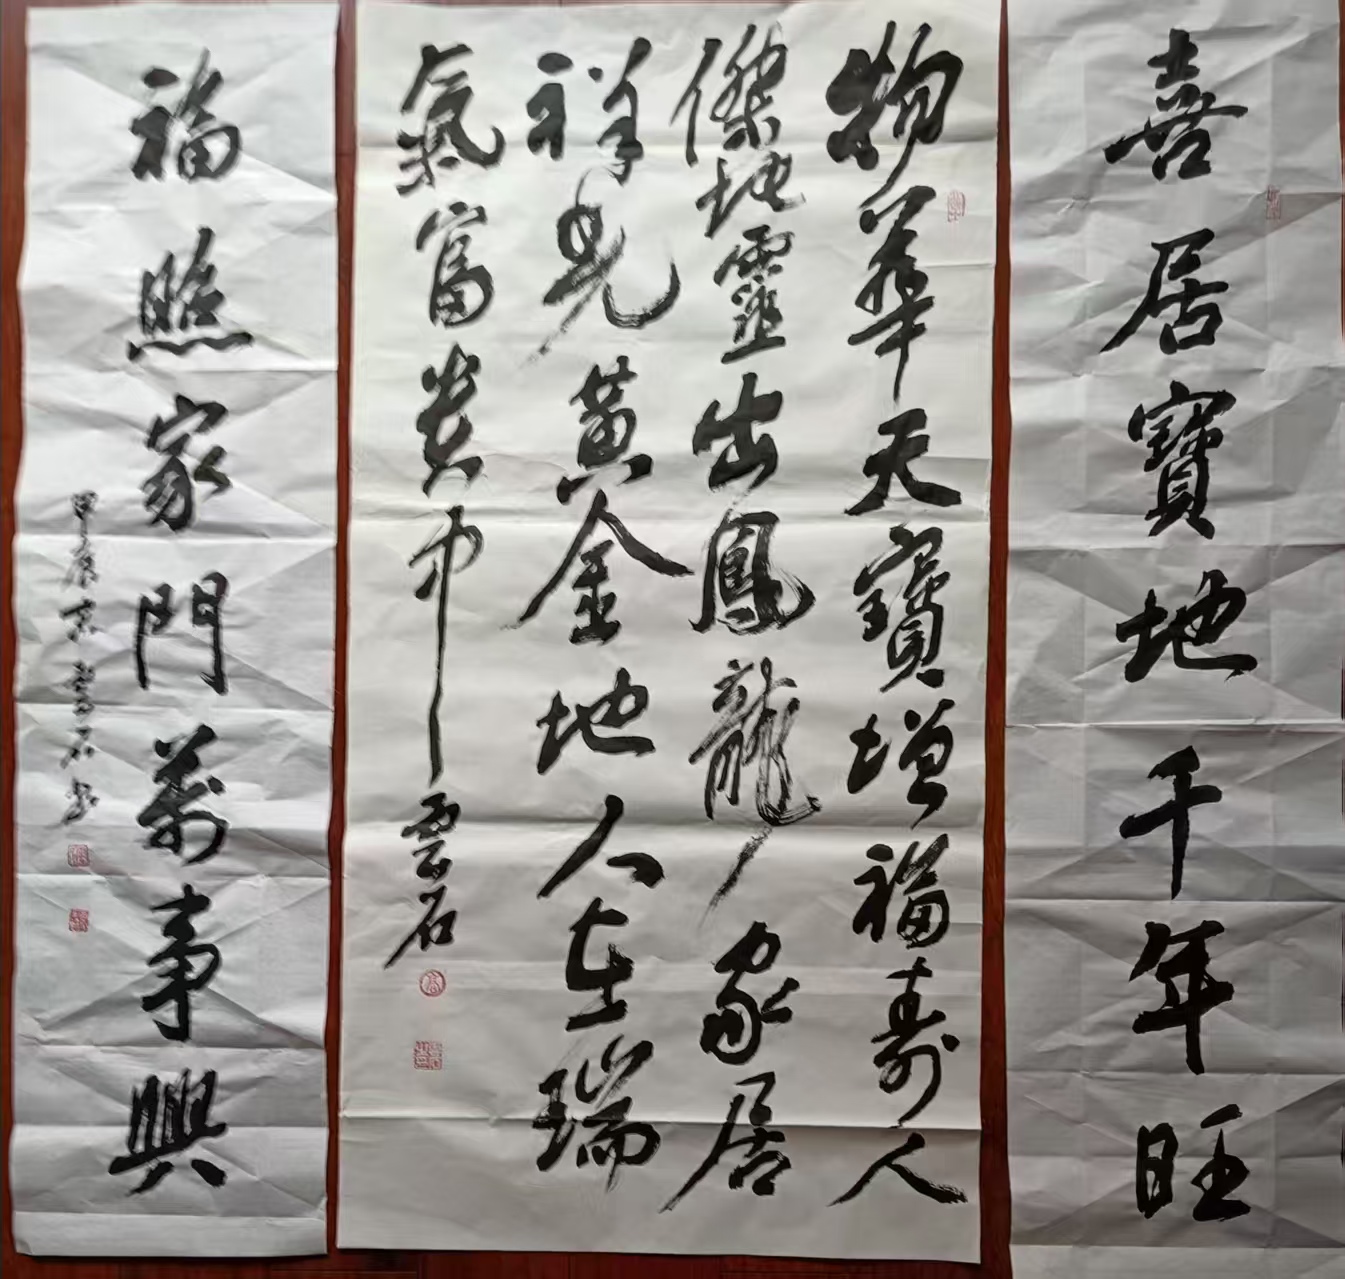 喜居寶地千年旺
物華天寶增福壽人
傑地靈出鳳龍家居
祥光黃金地人在瑞
氣富貴中雲石
福照家門萬事興
甲辰雲石书